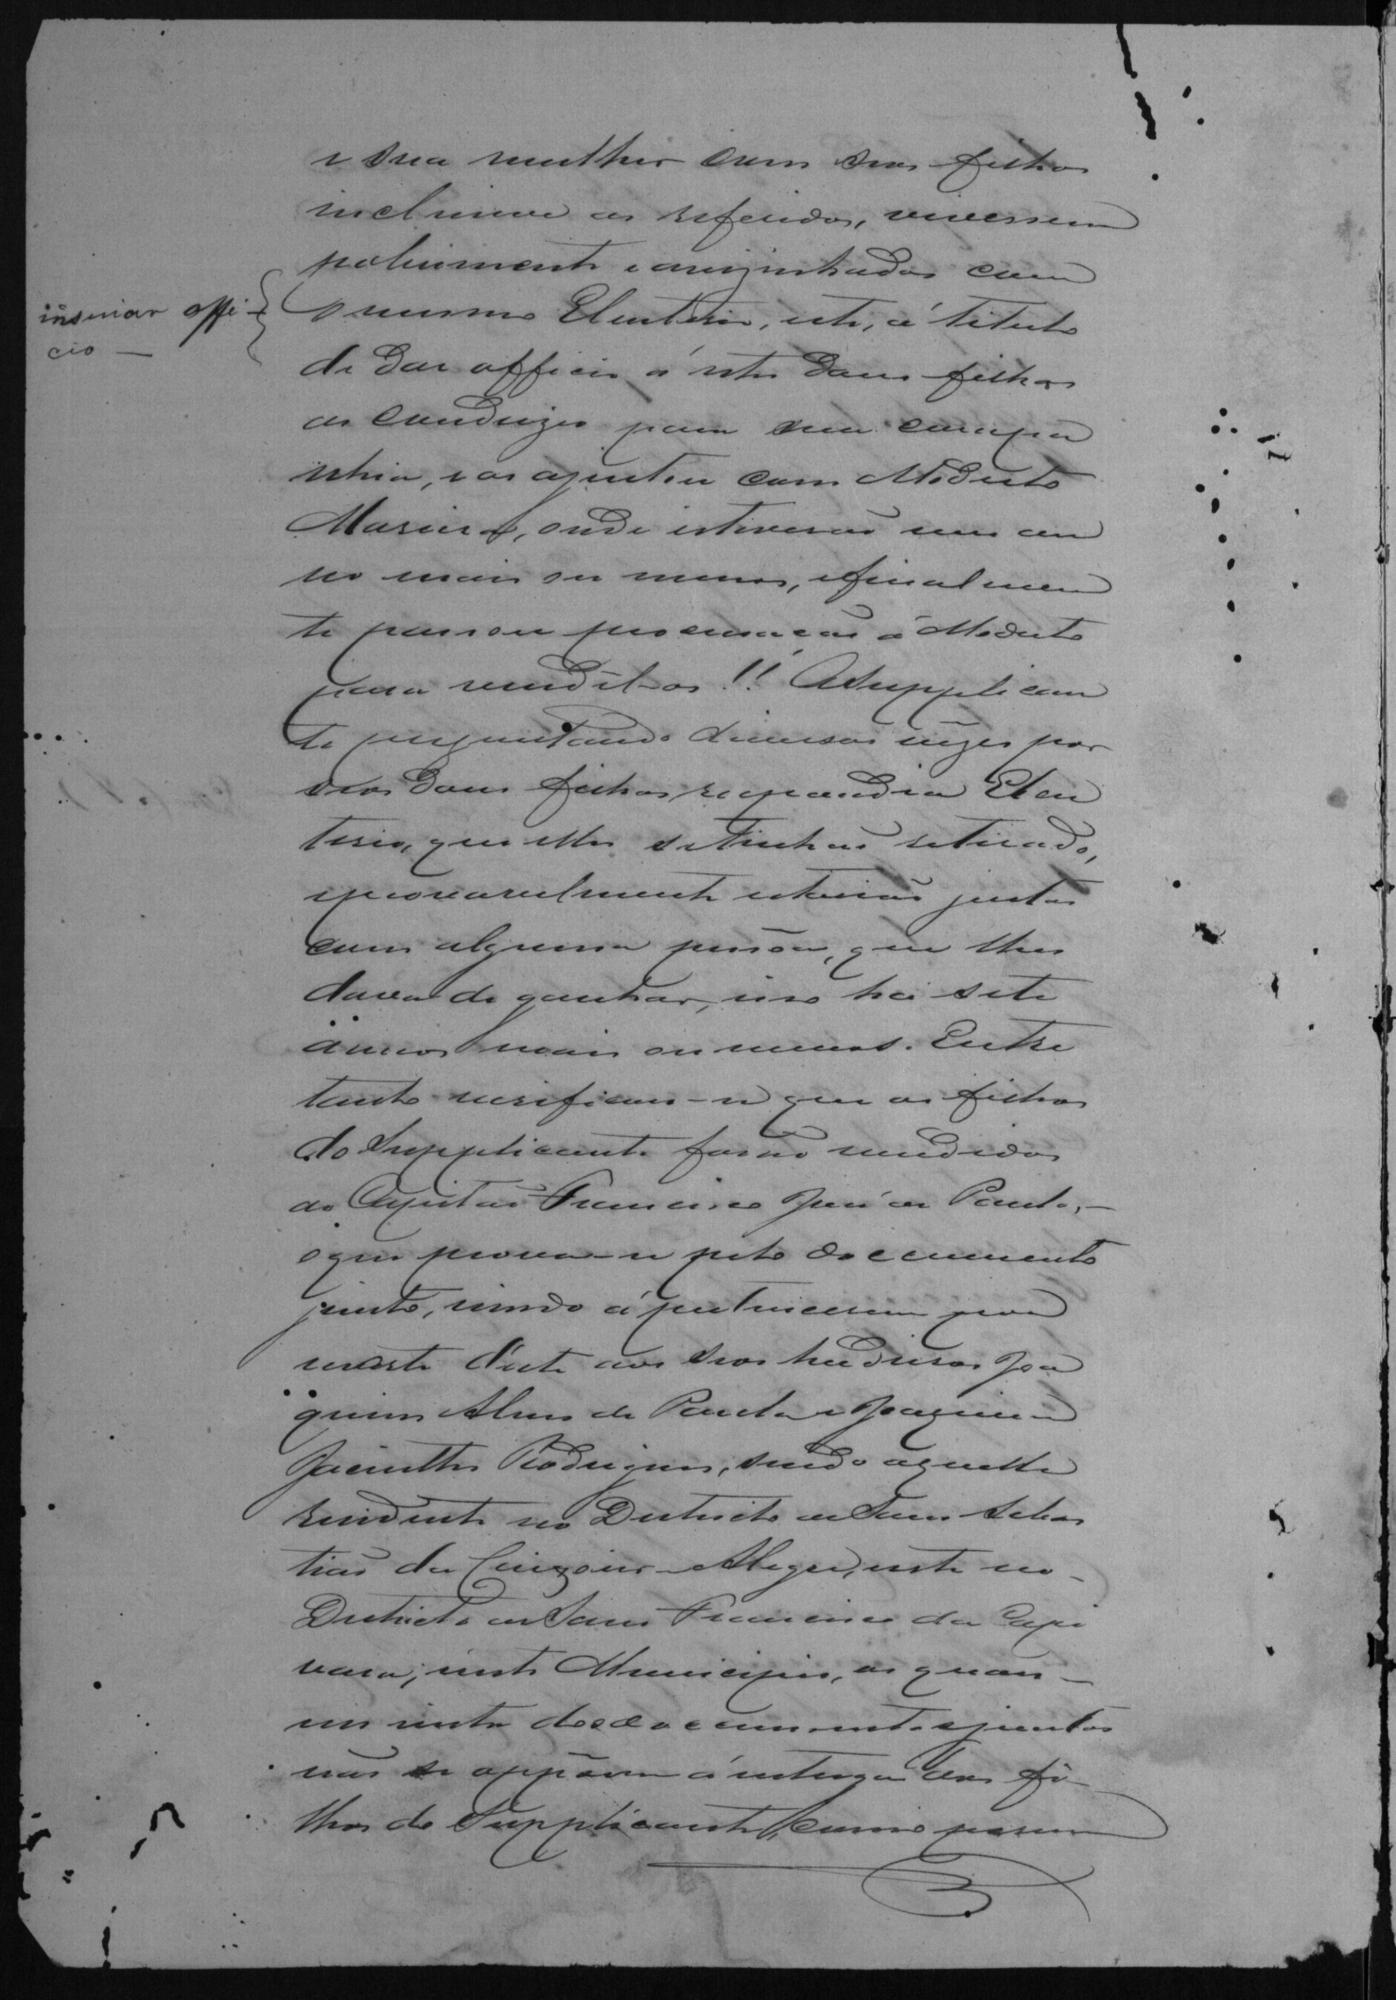 e sua mulher com seos filhos
inclusive os referidos, vivessem
pobremente e arranjados com
insinuar offi-
cio —
o mesmo Eleuterio, este, á titulo
de dar officio á estes dous filhos
os conduzio para sua compa
nhia, e os ajustou com Modesto
onde estiverão um an
no mais ou menos, e finalmen
te passou procuração á Modesto
para vendel-os!! O Supplican
te perguntando diversas vezes por
seos dous filhos, respondia Eleu
terio, que elles se tinhão retirado,
e provavelmente estarião justos
com alguma pessôa, que lhes
dava de ganhar, isso há sete
annos mais ou menos. Entre
tanto verificou-se que os filhos
do Supplicante forão vendidos
ao Capitão Francisco José de Paula,
o que prova-se pelo documento
junto, vindo á pertencerem por
morte d'este aos seos herdeiros Joa
quim Alves de Paula e Joaquim
Jacintho Rodrigues, sendo aquelle
residente no Districto de Sam Sebas
tião da Alegre, este no
Districto de Sam Francisco da Capi
vara, neste Municipio, os quaes
em vista dos documentos juntos
não se oppõem á entrega dos fi-
lhos do Supplicante, como passam